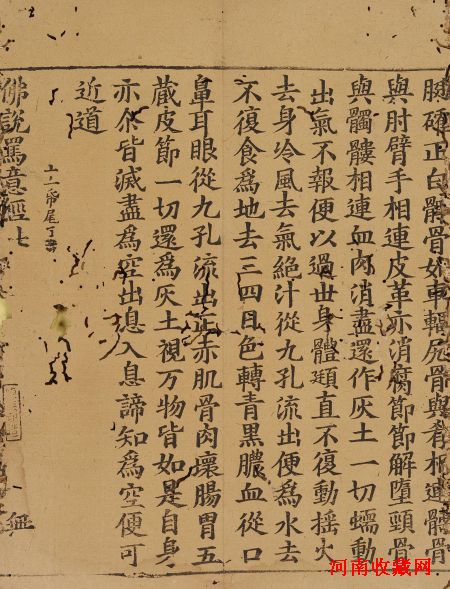 正白髖骨如車輻尻骨與脊相連髓骨
與肘臂手相連皮革亦消腐節節解墮頸骨
與髑髏相連血肉消盡還作灰土一切蠕動
出氣不報便以過世身體直不復動搖火
去身冷風去氣絕汁從九孔流出便為水去
不復食為地去三四日色轉青黑膿血從口
鼻耳眼從九孔流出正赤肌骨肉壞腸胃五
藏皮節一切還為灰土視万物皆如是自身
亦尒皆滅盡為空出息入息諦知為空便可
近道
佛說罵意經 七
河南收藏网